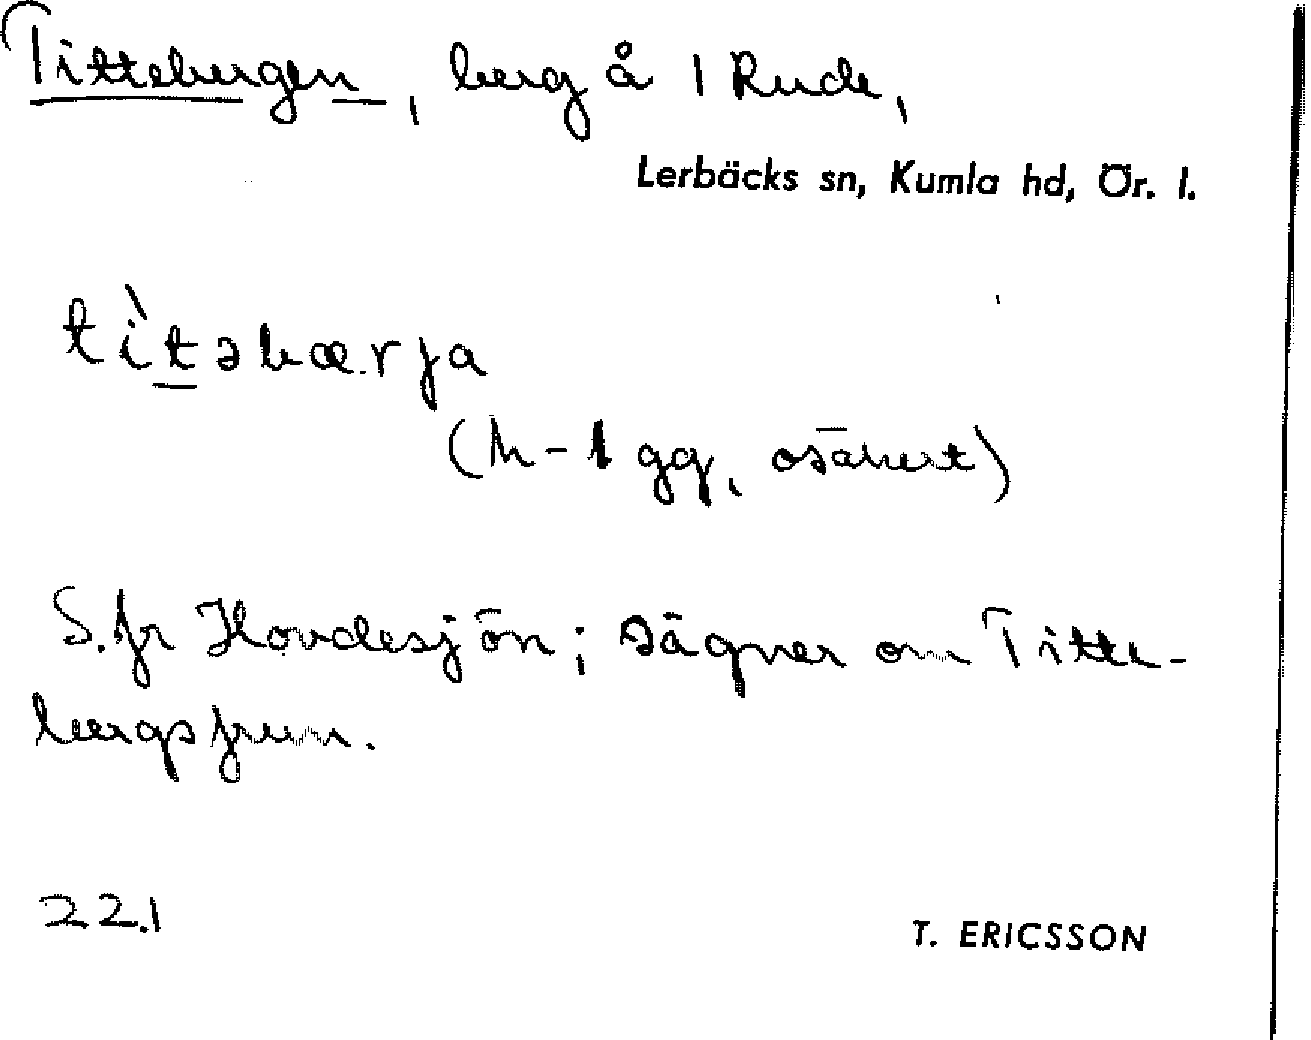 Tittebergen, berg å 1 Rude,
Lerbäcks sn, Kumla hd, Ör. l.
tìtəbæ.rja
(h - 1 gg, osäkert)
S. fr Hovdesjön; sägner om Titte-
bergsfrun.
22.1
T. ERICSSON